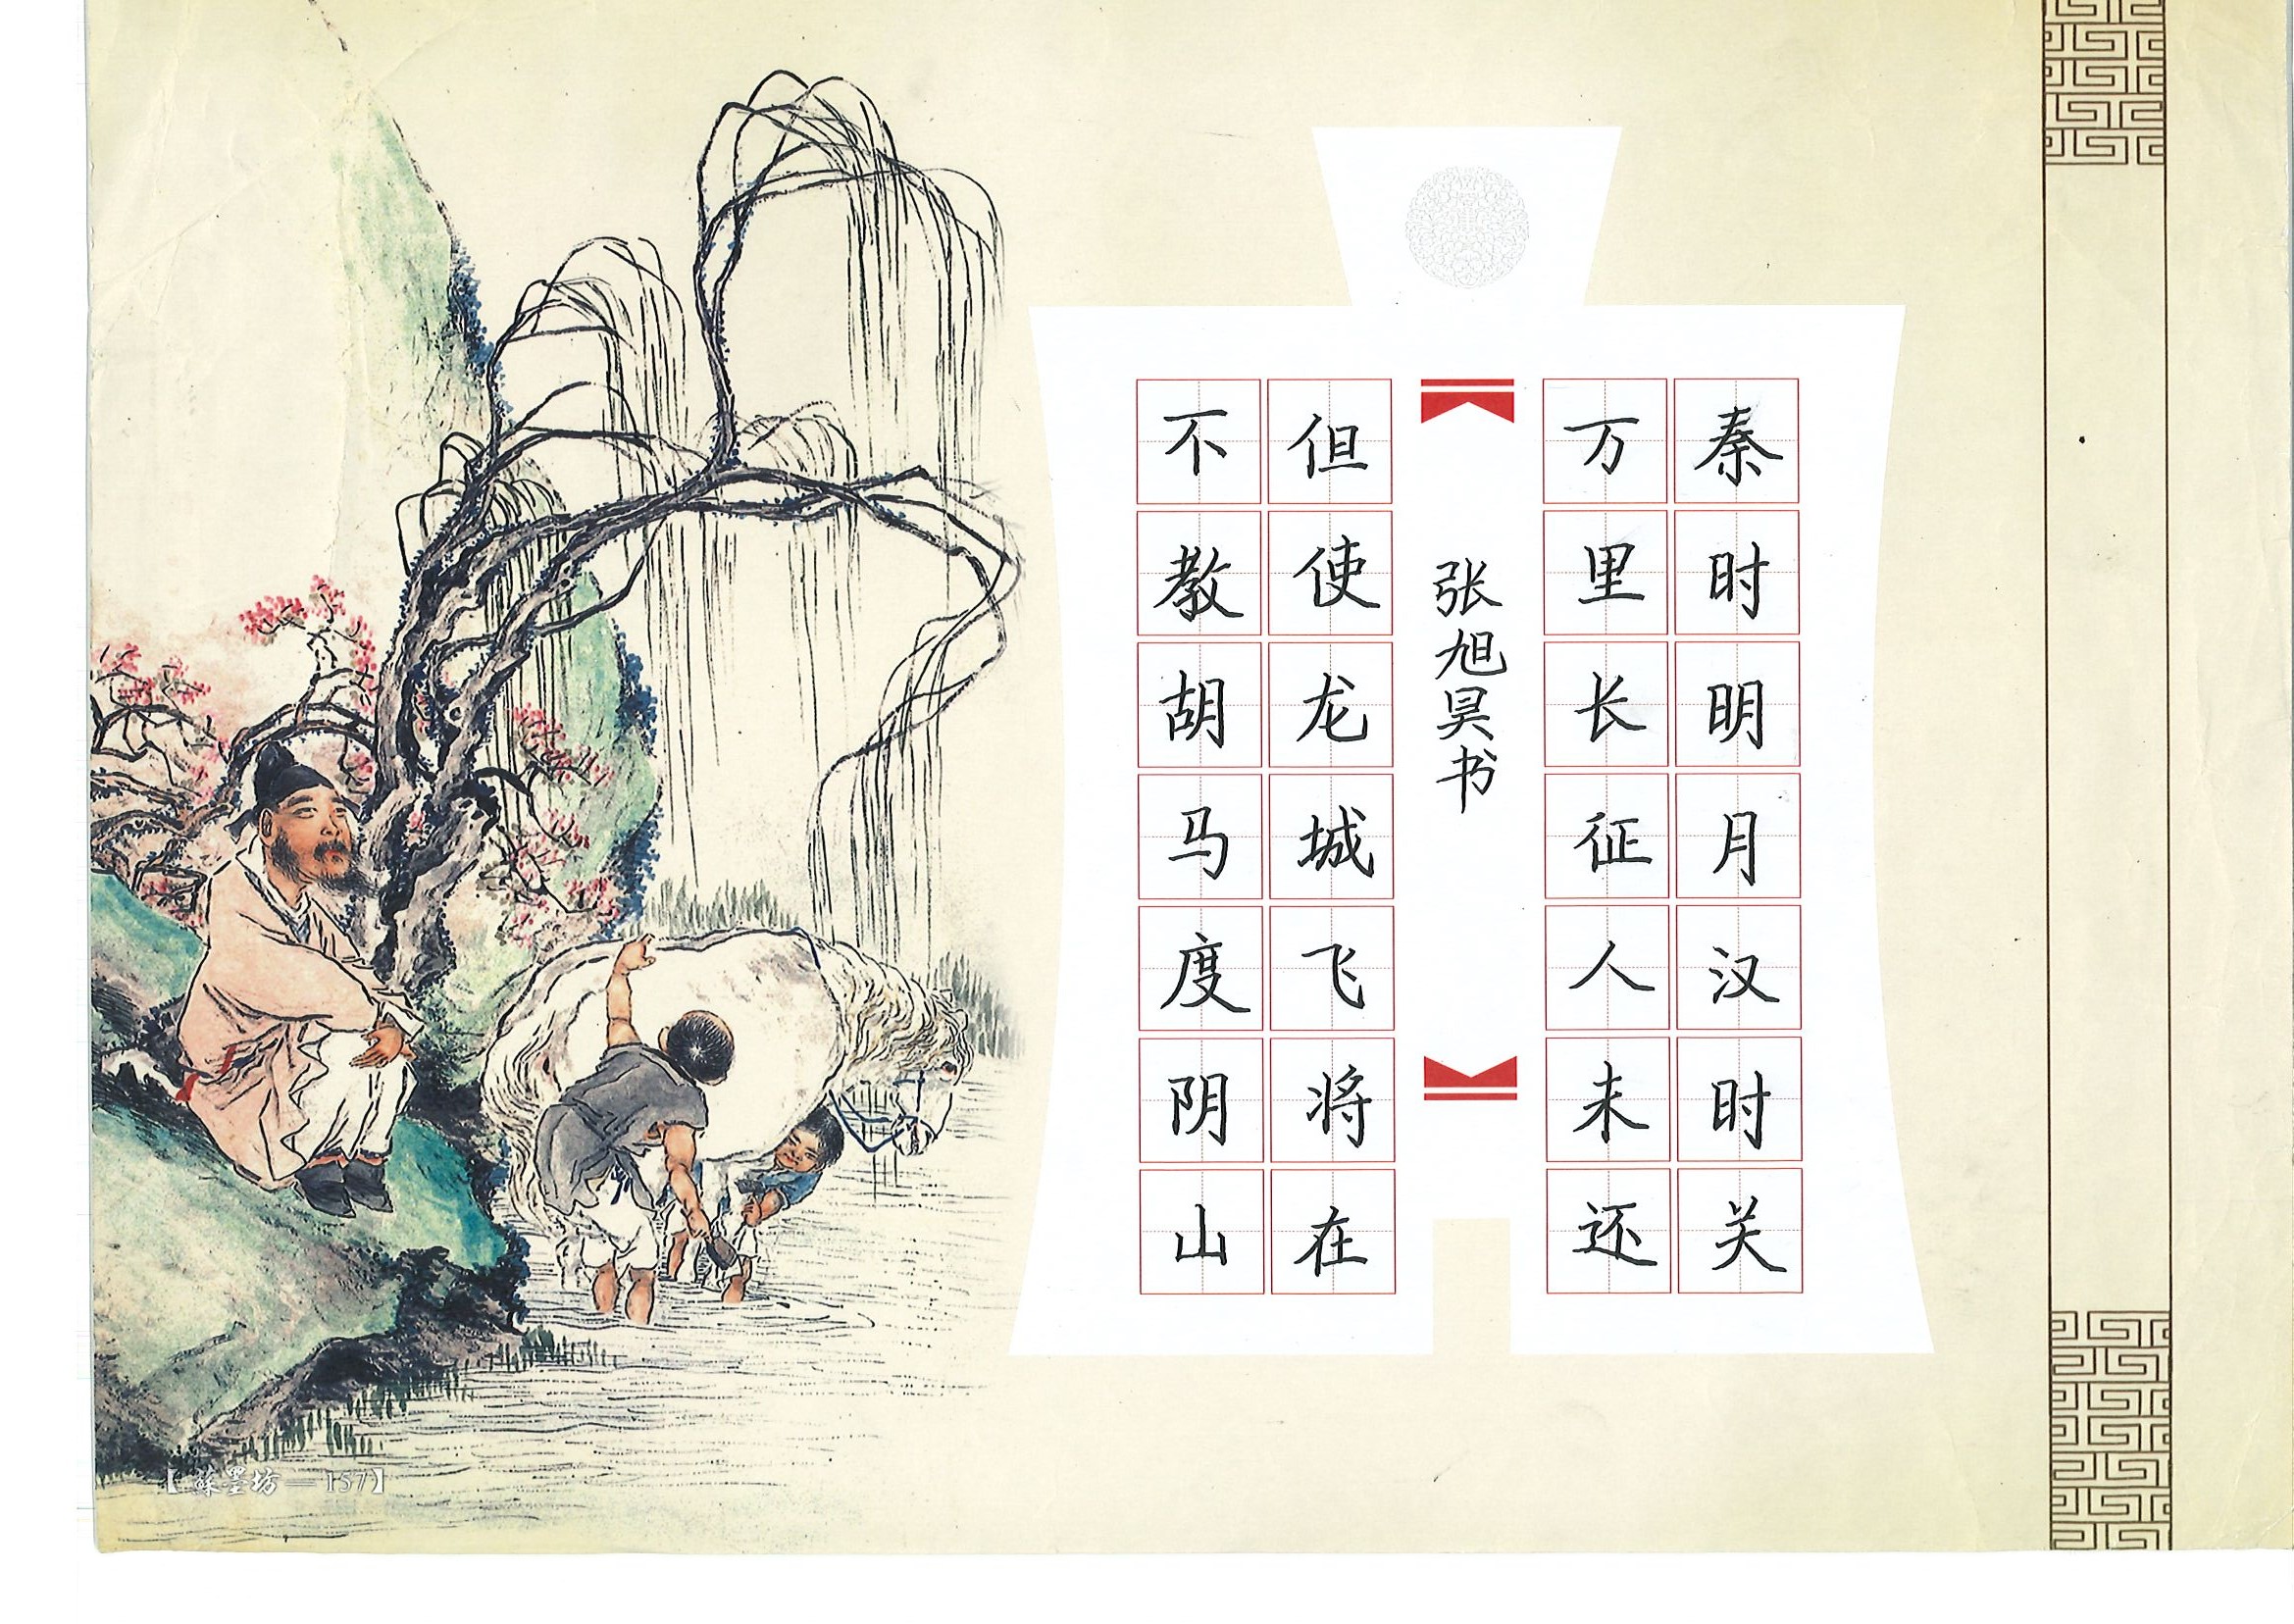 秦时明月汉时关
万里长征人未还
张旭昊书
但使龙城飞将在
不教胡马度阴山
【蘇墨坊—157】